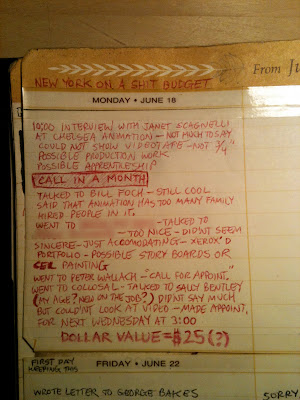 NEW YORK ON A SHIT BUDGET
From Ju
MONDAY • JUNE 18
10:00 INTERVIEW WITH JANET SCAGNELLI
AT CHELSEA ANIMATION - NOT MUCH TO SAY
COULD NOT SHOW VIDEOTAPE - NOT 3/4"
POSSIBLE PRODUCTION WORK
POSSIBLE APPRENTICESHIP
CALL IN A MONTH
TALKED TO BILL FOCH - STILL COOL
SAID THAT ANIMATION HAS TOO MANY FAMILY
HIRED PEOPLE IN IT.
WENT TO - TALKED TO
- TOO NICE - DIDN'T SEEM
SINCERE - JUST ACCOMODATING - XEROX'D
PORTFOLIO - POSSIBLE STORY BOARDS OR
CEL PAINTING
WENT TO PETER WALLACH - "CALL FOR APPOINT."
WENT TO COLLOSAL - TALKED TO SALLY BENTLEY
(MY AGE? NEW ON THE JOB?) DIDN'T SAY MUCH
BUT COULD'NT LOOK AT VIDEO - MADE APPOINT.
FOR NEXT WEDNESDAY AT 3:00
DOLLAR VALUE = $25 (?)
FIRST DAY
KEEPING THIS
FRIDAY • JUNE 22
WROTE LETTER TO GEORGE BAKES
SORRY